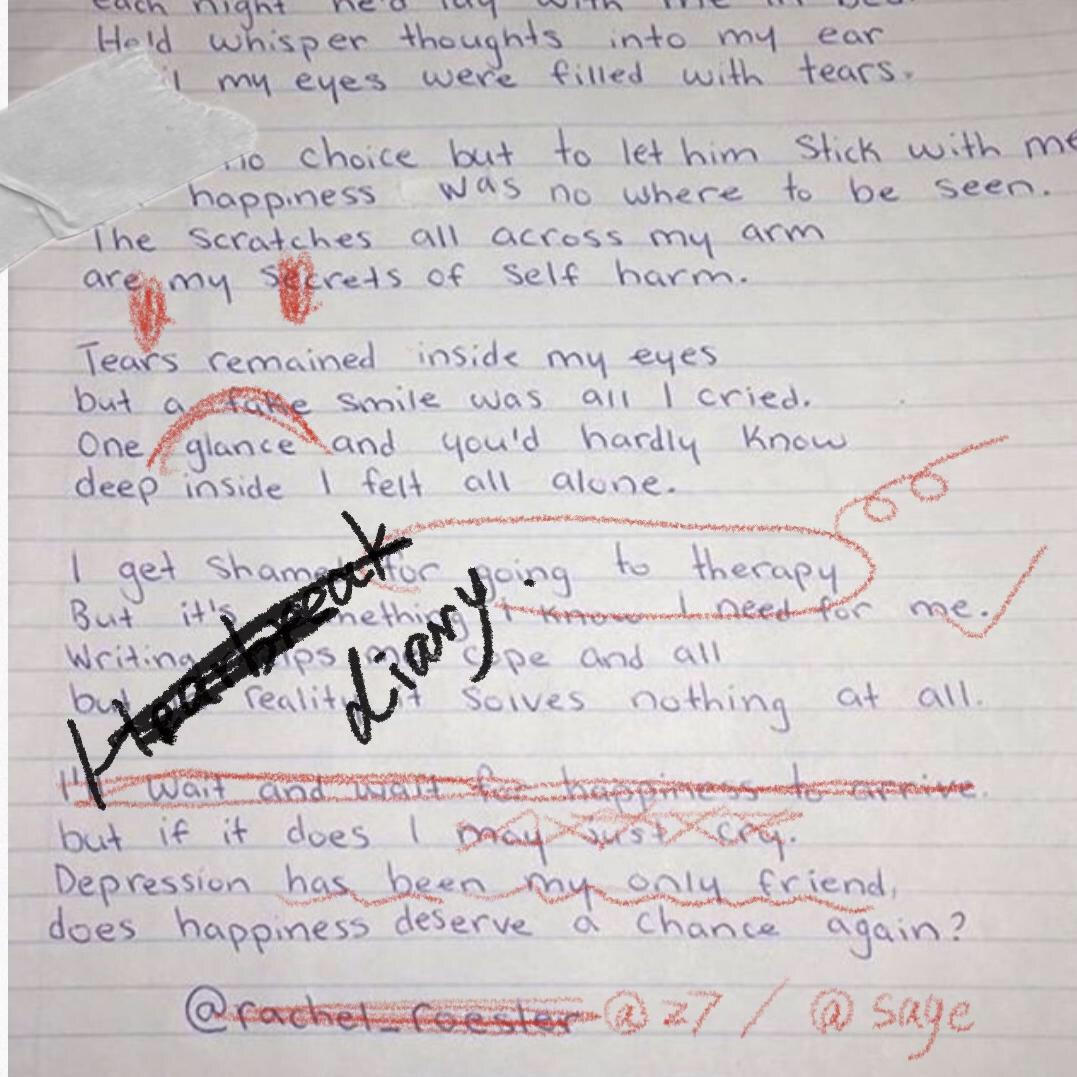 each night he'd lay with me in bed
He'd whisper thoughts into my ear
my eyes were filled with tears.
no choice but to let him stick with me
happiness was no where to be seen.
The scratches all across my arm
are my secrets of self harm.
Tears remained inside my eyes
but a fake smile was all I cried.
One glance and you'd hardly know
deep inside I felt all alone.
I get shame for going to therapy
But it's something I know I need for me.
Writing helps me cope and all
but reality it solves nothing at all.
Heartbreak
diary.
I'll wait and wait for happiness to arrive.
but if it does I may just cry.
Depression has been my only friend,
does happiness deserve a chance again?
@rachel_roesler @z7 / @sage